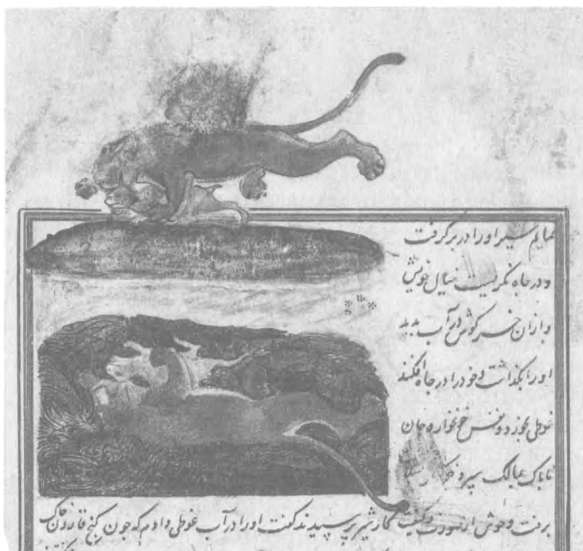 نمایم شیر او را در بر گرفت
و در چاه نگریست خیال خویش
و از آن خرگوش در آب بدید
او را بگذاشت و خود را در چاه افکند
غوطی بخورد و نفس خونخواره و جان
ناپاک بمالک سپرد
برفت و حوش از صورت و کیفیت کار شیر پرسیدند گفت او را در آب غوطی دادم که چون گنج قارون خاک